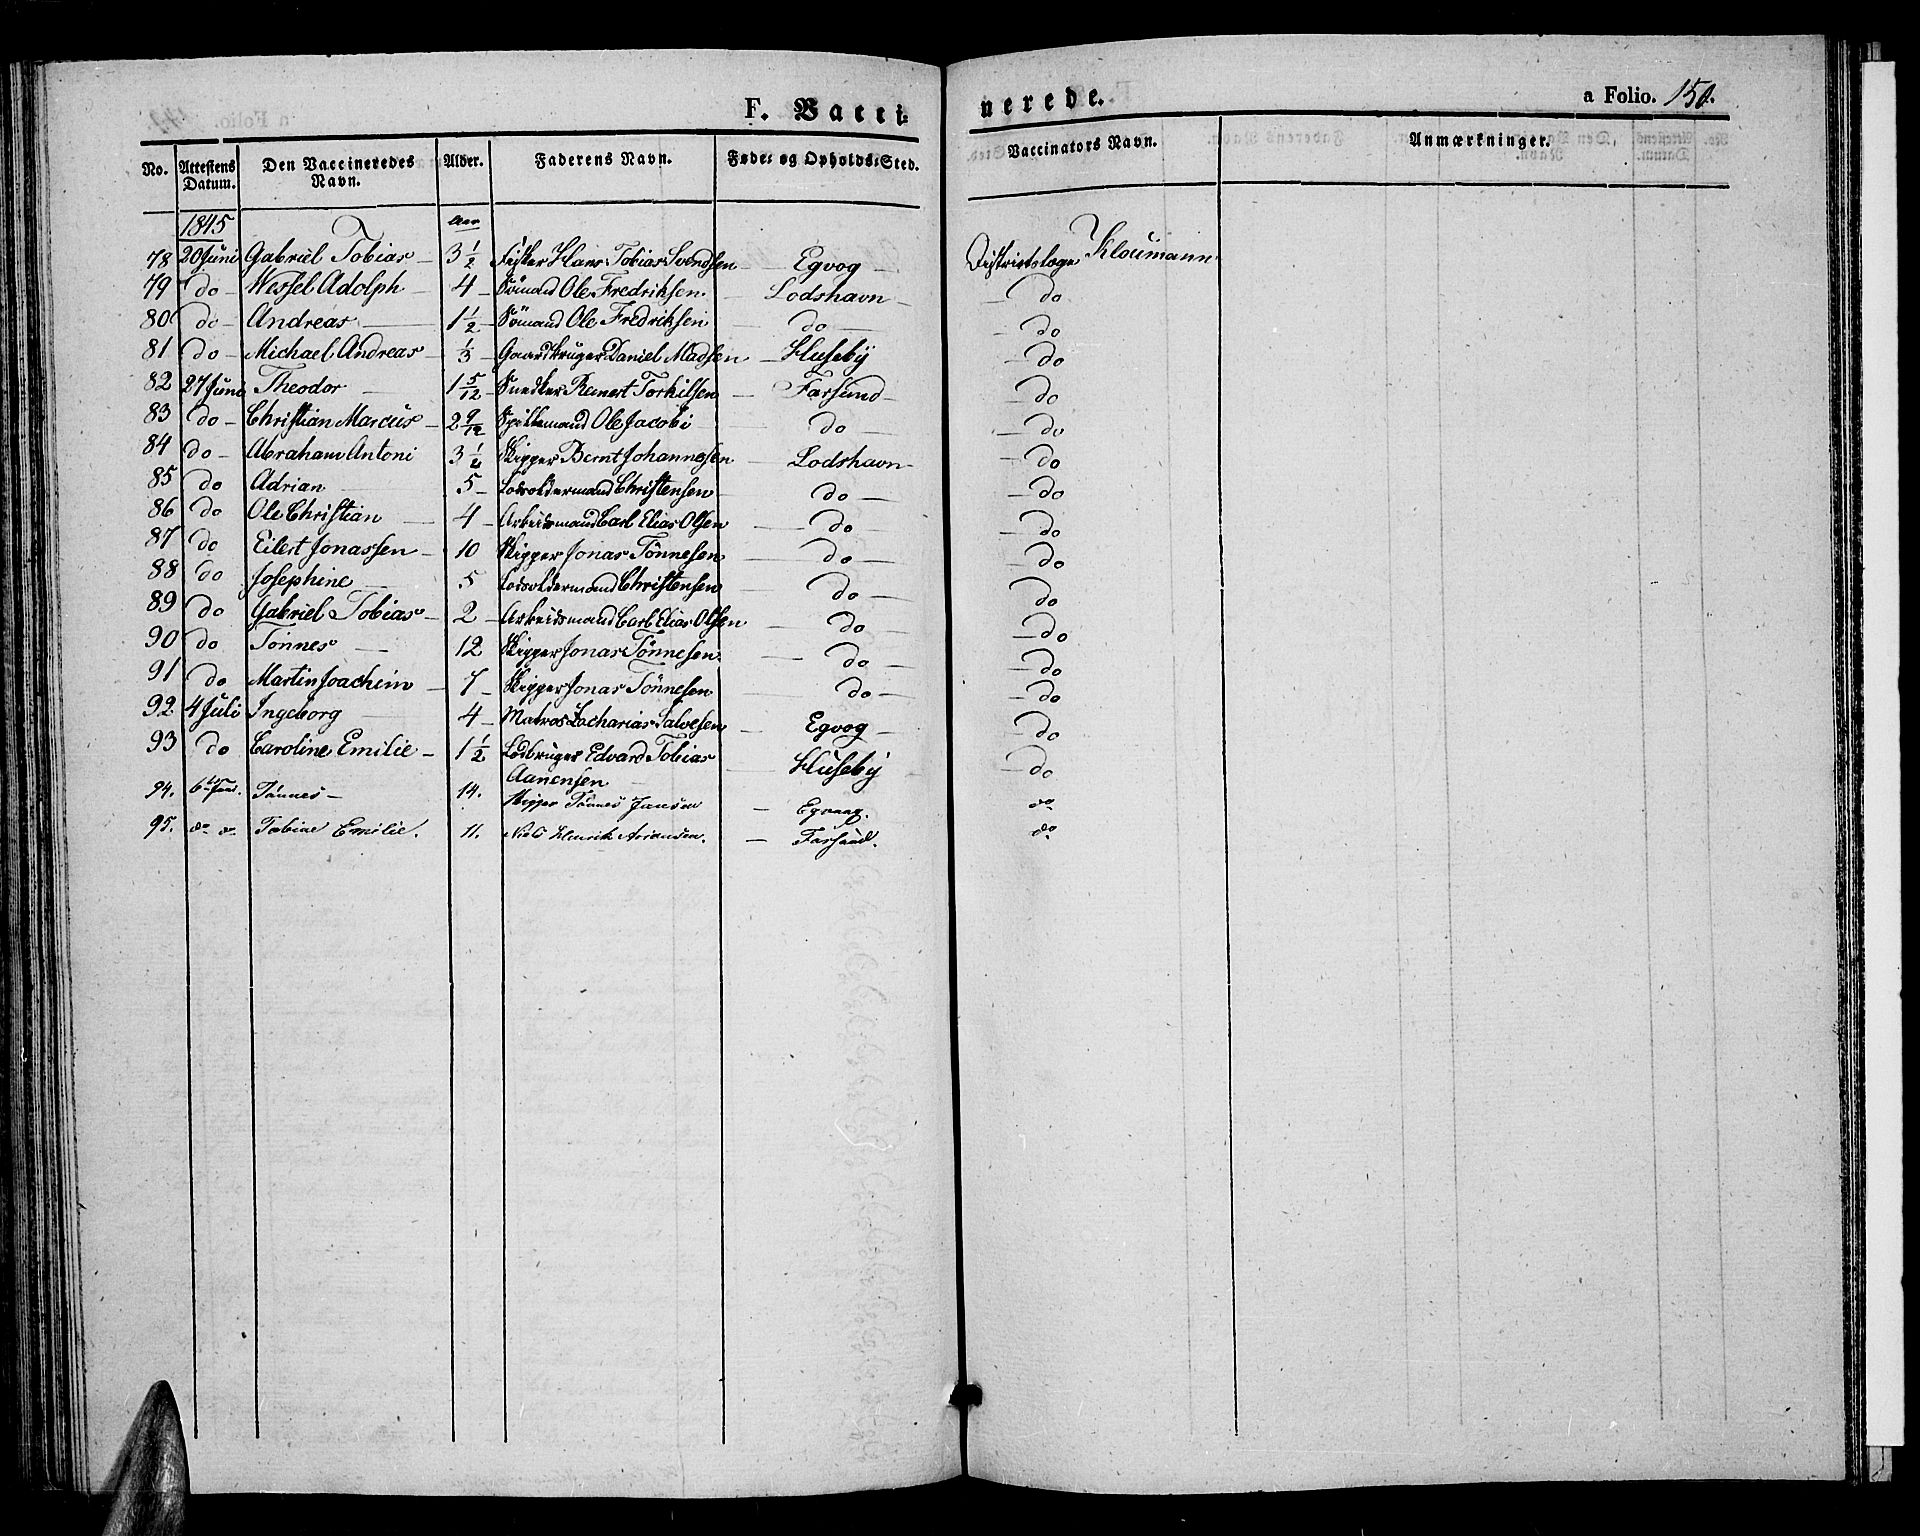 F. Vaccinerede. a Folio. 150.
No. Attestens Datum. Den Vaccineredes Navn. Alder. Faderens Navn. Føde- og Opholds-Sted. Vaccinators Navn. Anmærkninger.
1845 Aar
78 20 Juni Gabriel Tobias — 3 1/2 Fisker Hans Tobias Svendsen — Egvog — Districtslæge Kloumann
79 do — Wessel Adolph — 4 — Sömand Ole Fredriksen. — Lodshavn — — do
80 do — Andreas — 1 1/2 Sömand Ole Fredriksen — do — — do
81 do — Michael Andreas — 1/3 Gaardbruger Daniel Madsen — Huseby — do
82 27 Juni Theodor — 1 5/12 Snedker Reinert Torkilsen — Farsund — — do
83 do — Christian Marcus — 2 9/12 Spillemand Ole Jacobi — do — — do
84 do — Abraham Antoni 3 1/2 Skipper Bernt Johannesen — Lodshavn — — do
85 do Adrian — 5 — Lodsoldermand Christensen — do — — do
86 do Ole Christian — 4 — Arbeidsmand Carl Elias Olsen — do — do
87 do Eilert Jonassen — 10 Skipper Jonas Tönnesen — do — — do
88 do Josephine — 5 Lodsoldermand Christensen — do — do
89 do Gabriel Tobias — 2 — Arbeidsmand Carl Elias Olsen — do — — do
90 do Tönnes — 12 Skipper Jonas Tönnesen. — do — — do
91 do Martin Joachim — 7 — Skipper Jonas Tönnesen do — — do
92 4 Juli Ingeborg — 4 — Matros Zacharias Salvesen — Egvog — — do
93 do Caroline Emilie — 1 1/2 Lodbruger Edvard Tobias — Huseby — — do
Aanensen —
94. 6te Tönnes — 14. Skipper Tönnes Jansen — Egvaag. do
95. do do Tobine Emilie. 11. Niels Henrik Ariansen. — Farsund. do